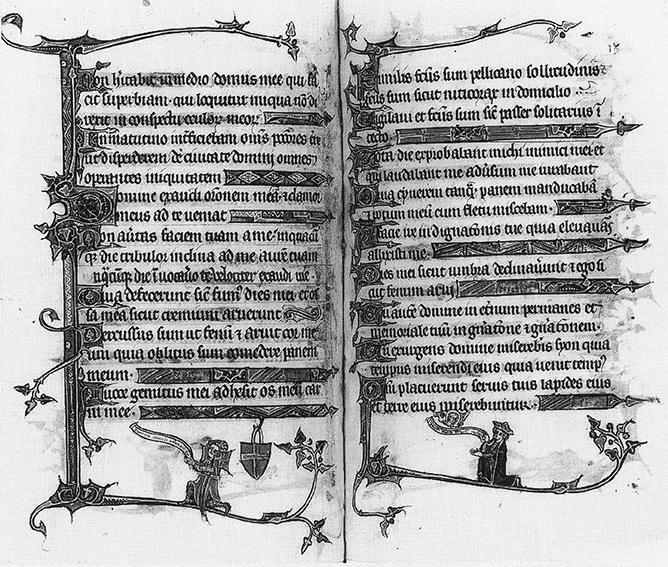 Non hitabit in medio domus mee qui fa
cit superbiam. qui loquitur iniqua nō di
rexit in conspectu oculor meor
In matutino īterficiebam oms pctores tre
ut disperderem de civitate domini omnes
operantes iniquitatem
Domine exaudi oronem meā & clamor
meus ad te veniat
Non avtas faciem tuam a me. in quacū
que die tribulor inclina ad me aurē tuam
In quacūque die īvocavo te velociter exaudi me.
Quia defecerunt sic fumus dies mei et os
sa mea sicut cremium aruerunt
Percussus sum ut fenū & aruit cor me
um quia oblitus sum comedere panem
meum.
A voce gemitus mei adhesit os meū car
ni mee.
Similis fcus sum pellicano sollitudinis
fcus sum sicut nicticorax in domicilio
Vigilavi et fcus sum sic passer solitarius ī
tecto
Tota die exprobabant michi inimici mei et
qui laudabant me adūsum me iurabant
Quia cinerem tanq panem manducabā
& potum meū cum fletu miscebam.
A facie ire indignatōnis tue quia elevans
allisisti me.
Dies mei sicut umbra declinavunt & ego si
cut fenum arui
Tu autē domine in etnum permanes et
memoriale tuū in gnatōne & gnatōnem.
Tu exurgens domine misereberis syon quia
tempus miserendi eius quia venit temp
Qm placuerunt servis tuis lapides eius
et terre eius miserebuntur.